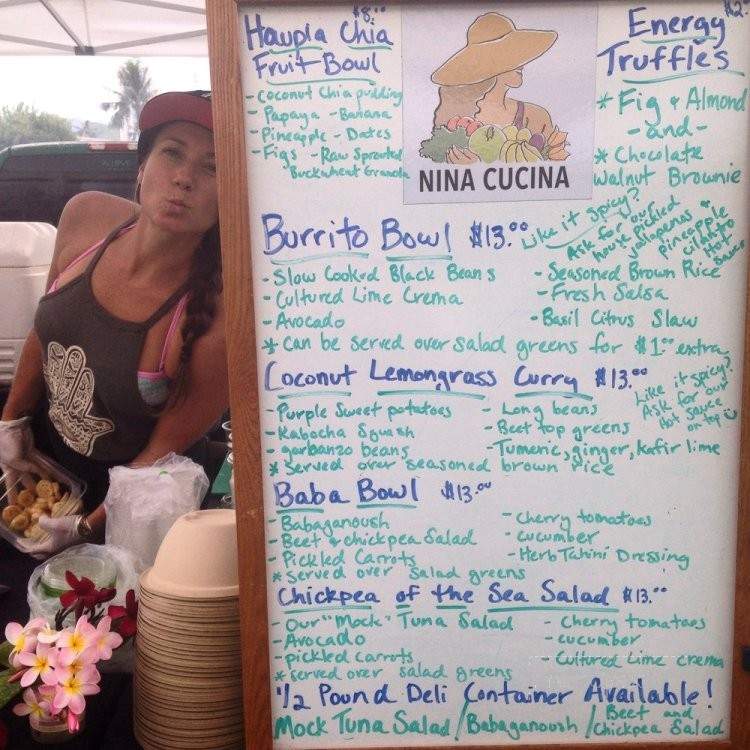 $8.00
Haupia Chia
Fruit Bowl
- Coconut Chia pudding
- Papaya - Banana
- Pineapple - Dates
- Figs - Raw Sprouted
Buckwheat Granola
NINA CUCINA
$2.-
Energy
Truffles
* Fig & Almond
- and -
* Chocolate
Walnut Brownie
Burrito Bowl $13.00
Like it spicy?
Ask for our
house pickled
jalapenos &
pineapple
cilantro
Hot
Sauce
- Slow Cooked Black Beans
- Cultured Lime Crema
- Avocado
- Seasoned Brown Rice
- Fresh Salsa
- Basil Citrus Slaw
* Can be served over salad greens for $1.00 extra
Coconut Lemongrass Curry $13.00
- Purple Sweet potatoes
- Kabocha Squash
- garbanzo beans
- Long beans
- Beet top greens
- Tumeric, ginger, kafir lime
* Served over seasoned brown rice
Like it spicy?
Ask for our
Hot sauce
on top
Baba Bowl $13.00
- Babaganoush
- Beet & chickpea Salad
- Pickled Carrots
- Cherry tomatoes
- cucumber
- Herb Tahini Dressing
* Served over Salad greens
Chickpea of the Sea Salad $13.00
- Our "Mock" Tuna Salad
- Avocado
- pickled carrots
- Cherry tomatoes
- cucumber
- Cultured Lime crema
* served over salad greens
1/2 Pound Deli Container Available!
Mock Tuna Salad / Babaganoush / Beet and Chickpea Salad